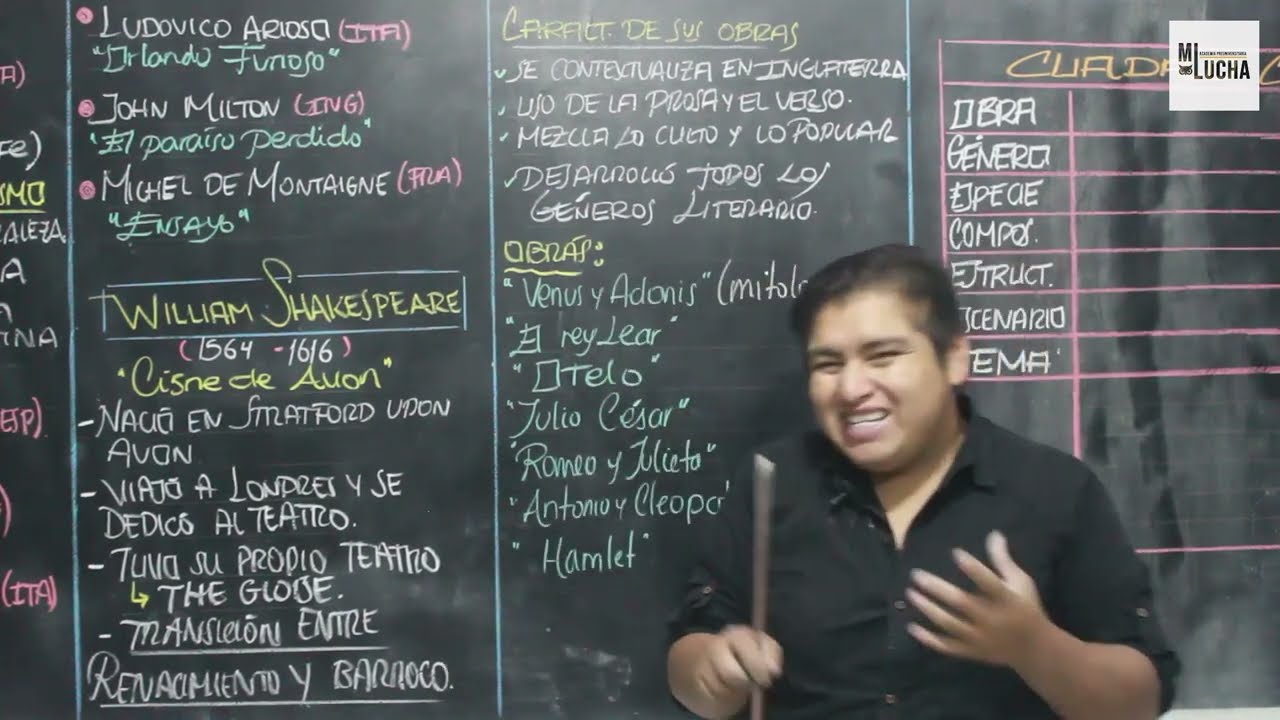 LUDOVICO ARIOSO (ITA)
"Orlando Furioso"
JOHN MILTON (ING)
"El paraíso Perdido"
MICHEL DE MONTAIGNE (FRA)
"ENSAYO"
WILLIAM SHAKESPEARE
(1564 - 1616)
"Cisne de Avon"
- NACIÓ EN STRATFORD UPON
AVON
- VIAJÓ A LONDRES Y SE
DEDICÓ AL TEATRO.
- TUVO SU PROPIO TEATRO
THE GLOBE.
- TRANSICIÓN ENTRE
RENACIMIENTO Y BARROCO.
CARACT. DE SUS OBRAS
SE CONTEXTUALIZA EN INGLATERRA
USO DE LA PROSA Y EL VERSO.
MEZCLA LO CULTO Y LO POPULAR
DESARROLLÓ TODOS LOS
GÉNEROS LITERARIO.
OBRAS:
"Venus y Adonis" (mitolo
"El rey Lear"
"OTELO"
"Julio César"
"Romeo y Julieta"
"Antonio y Cleopa
"Hamlet"
MI
ACADEMIA PREUNIVERSITARIA
LUCHA
CUAD
OBRA
GÉNERO
ESPECIE
COMPOS.
ESTRUCT.
SCENARIO
TEMA
(ITA)